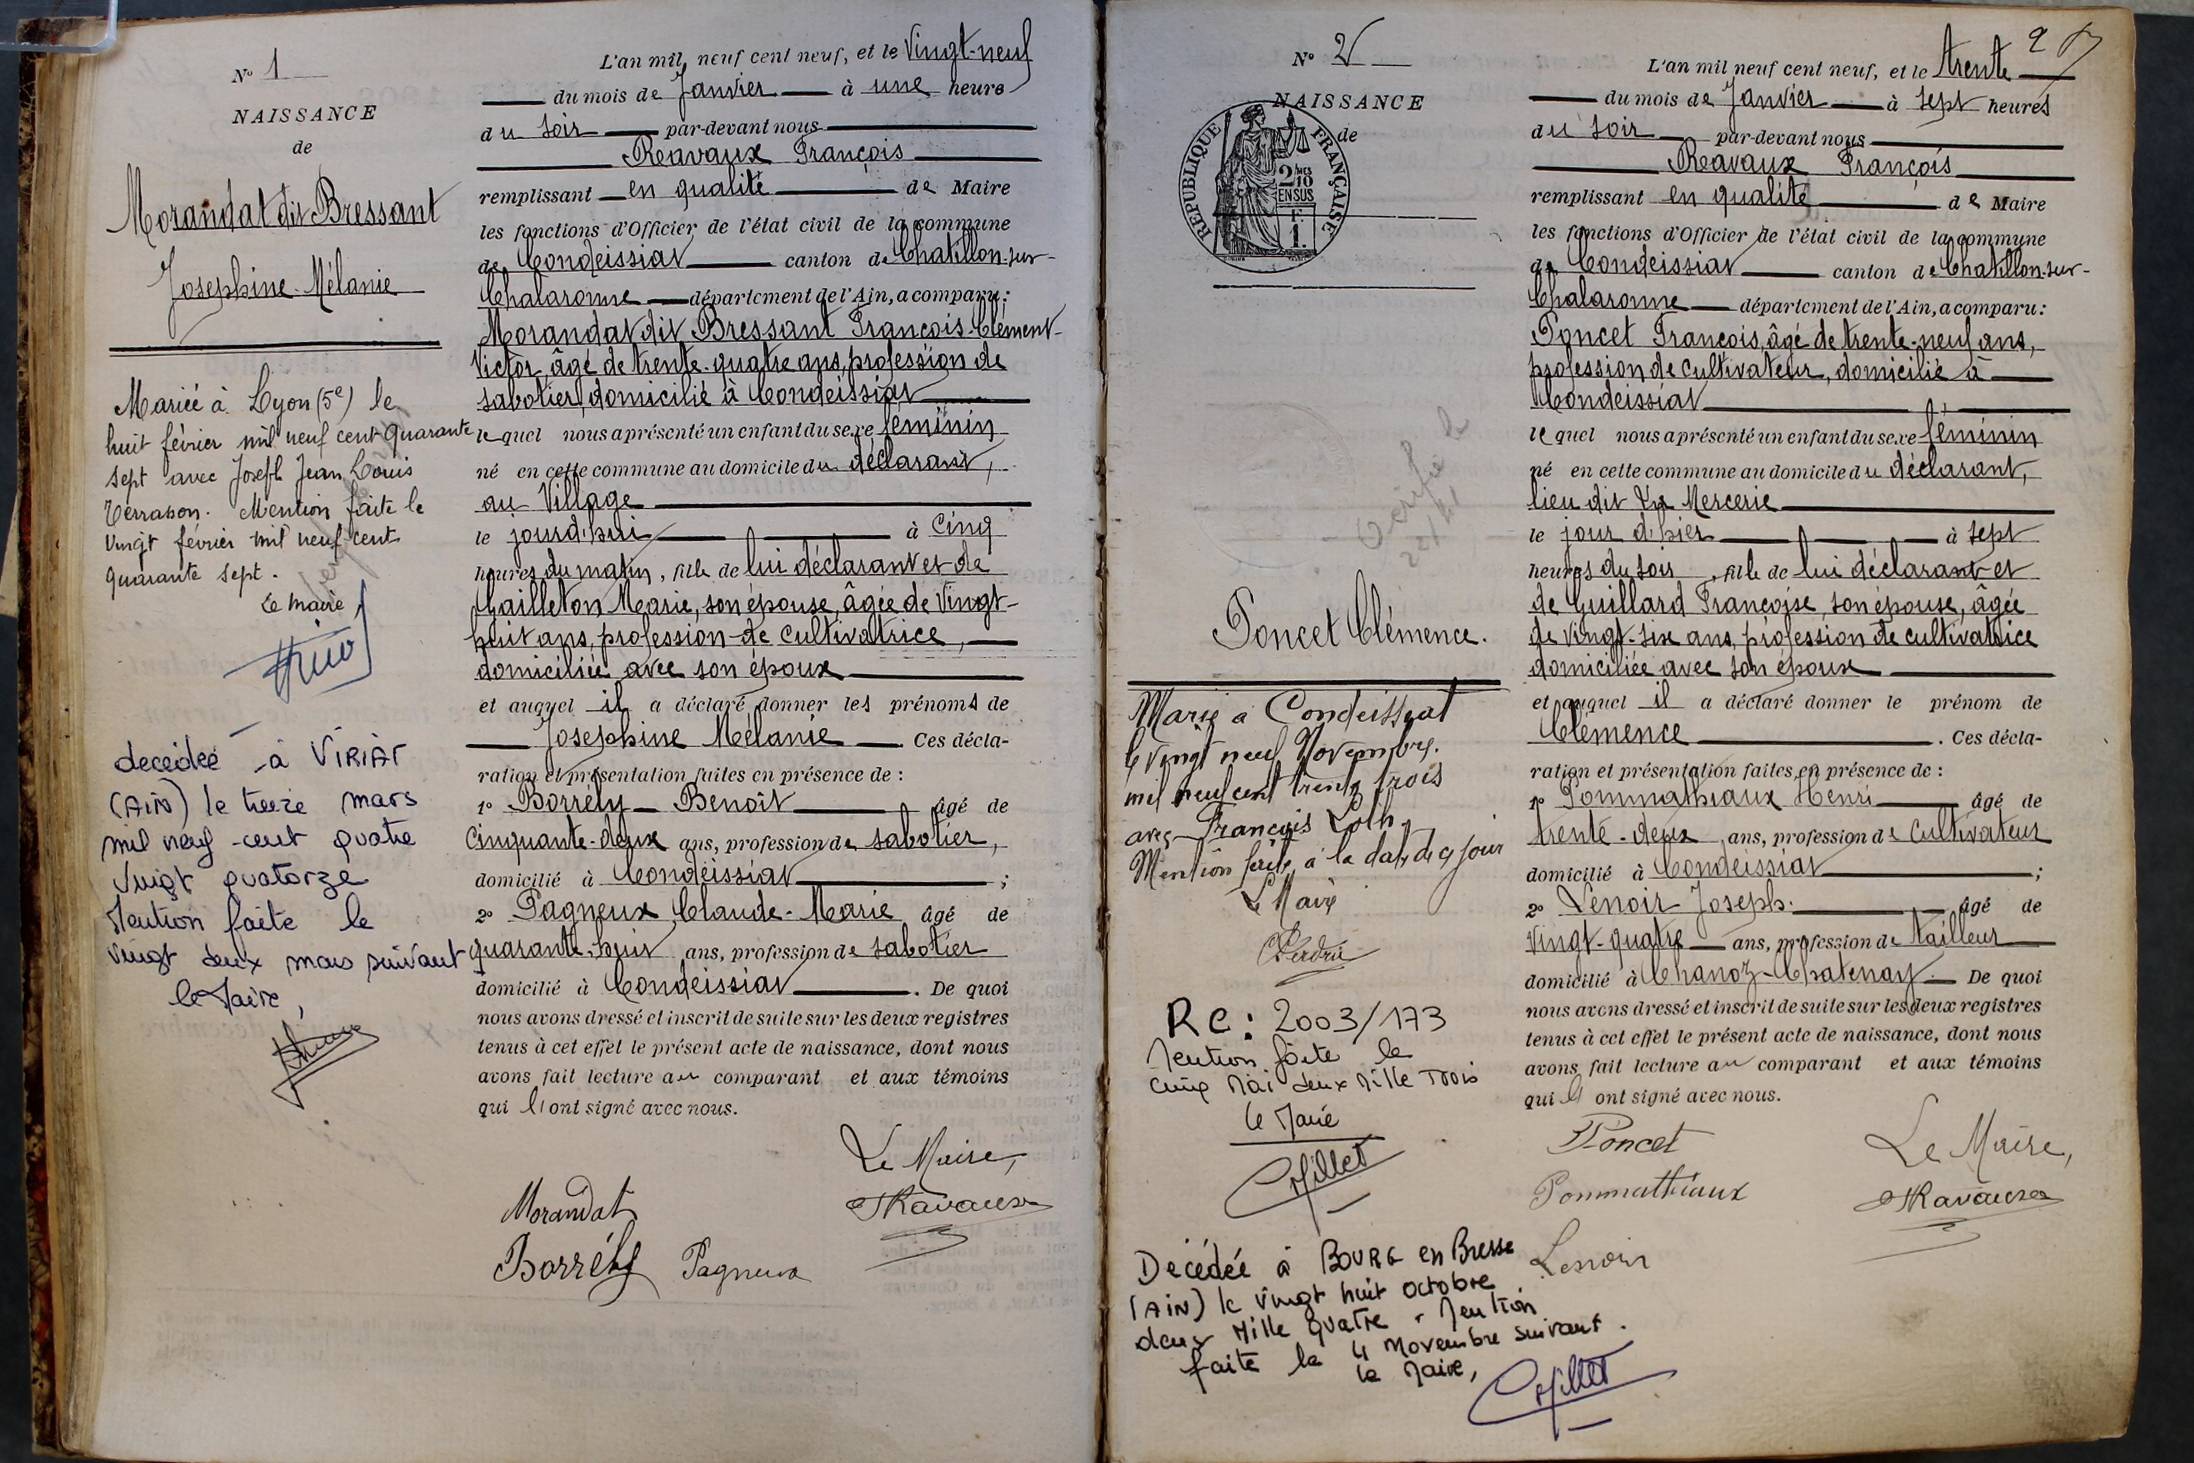 N° 1
NAISSANCE
de
Morandat dit Bressant
Josephine Mélanie
Mariée à Lyon (5e) le
huit février mil neuf cent quarante
sept avec Joseph Jean Louis
Terrason. Mention faite le
vingt février mil neuf cent
quarante sept.
Le maire
decédée à VIRIAT
(AIN) le treize mars
mil neuf-cent quatre
vingt quatorze
Mention faite le
vingt deux mars suivant
le Maire,
L'an mil neuf cent neuf, et le Vingt-neuf
du mois de Janvier à une heure
du soir par-devant nous
Ravaux François
remplissant en qualité de Maire
les fonctions d'Officier de l'état civil de la commune
de Condeissiat canton de Chatillon-sur-
Chalaronne département de l'Ain, a comparu:
Morandat dit Bressant François-Clément-
Victor, âgé de trente-quatre ans, profession de
sabotier, domicilié à Condeissiat
lequel nous a présenté un enfant du sexe féminin
né en cette commune au domicile du déclarant,
au Village
le jourd'hui à cinq
heures du matin, fille de lui déclarant et de
Cailleton Marie, son épouse, âgée de vingt-
huit ans, profession de cultivatrice,
domiciliée avec son époux
et auquel il a déclaré donner les prénoms de
Josephine Mélanie. Ces décla-
ration et présentation faites en présence de :
1° Borrély Benoît âgé de
cinquante-deux ans, profession de sabotier,
domicilié à Condeissiat ;
2° Pagneux Claude-Marie âgé de
quarante-huit ans, profession de sabotier
domicilié à Condeissiat. De quoi
nous avons dressé et inscrit de suite sur les deux registres
tenus à cet effet le présent acte de naissance, dont nous
avons fait lecture au comparant et aux témoins
qui l'ont signé avec nous.
Le Maire,
Morandat
Ravaux
Borrély Pagneux
2
N° 2
NAISSANCE
de
RÉPUBLIQUE FRANÇAISE
2/10 EN SUS
F.
1.
Vérifié le
Poncet Clémence.
Marié à Condeissiat
le vingt neuf Novembre
mil neuf cent trente trois
avec François Loth.
Mention faite à la date de ce jour
Le Maire
RC: 2003/173
Mention faite le
cinq Mai deux Mille Trois
le Maire
Décédée à BOURG en Bresse
(AIN) le vingt huit octobre
deux Mille quatre - Mention
faite le 4 Novembre suivant.
le Maire,
L'an mil neuf cent neuf, et le trente
du mois de Janvier à sept heures
du soir par-devant nous
Ravaux François
remplissant en qualité de Maire
les fonctions d'Officier de l'état civil de la commune
de Condeissiat canton de Chatillon-sur-
Chalaronne département de l'Ain, a comparu:
Poncet François, âgé de trente-neuf ans,
profession de cultivateur, domicilié à
Condeissiat
lequel nous a présenté un enfant du sexe féminin
né en cette commune au domicile du déclarant,
lieu dit La Mercerie
le jour d'hier à sept
heures du soir, fille de lui déclarant et
de Guillard Françoise, son épouse, âgée
de vingt-six ans, profession de cultivatrice
domiciliée avec son époux
et auquel il a déclaré donner le prénom de
Clémence. Ces décla-
ration et présentation faites en présence de :
1° Pommathiaux Henri âgé de
trente-deux ans, profession de cultivateur
domicilié à Condeissiat ;
2° Lenoir Joseph. âgé de
vingt-quatre ans, profession de tailleur
domicilié à Chanoz-Chatenay. De quoi
nous avons dressé et inscrit de suite sur les deux registres
tenus à cet effet le présent acte de naissance, dont nous
avons fait lecture au comparant et aux témoins
qui l'ont signé avec nous.
Poncet
Le Maire,
Pommathiaux
Ravaux
Lenoir